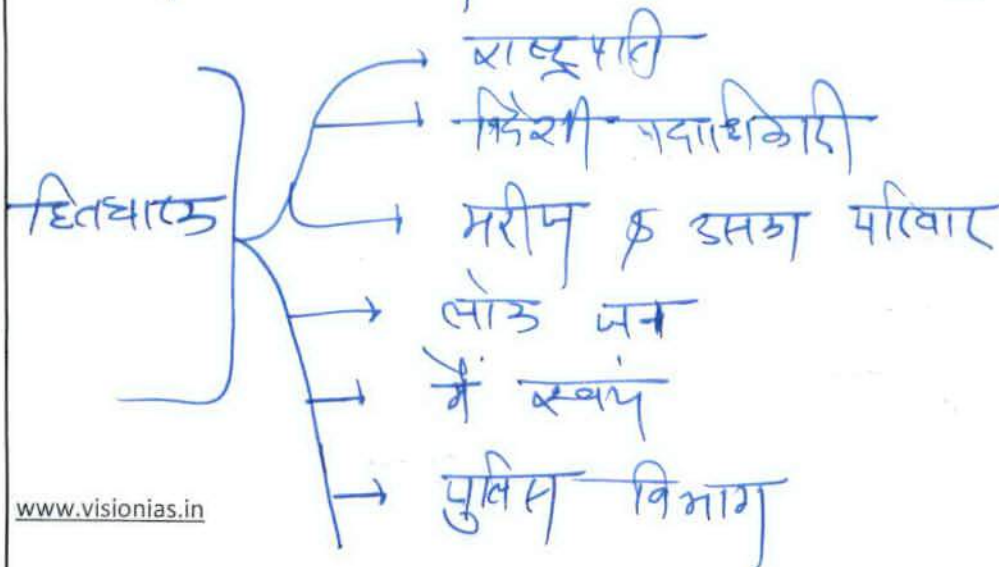 राष्ट्रपति
विदेशी पदाधिकारी
हितधारक
मरीज & उसका परिवार
लोक जन
मैं स्वयं
पुलिस विभाग
www.visionias.in